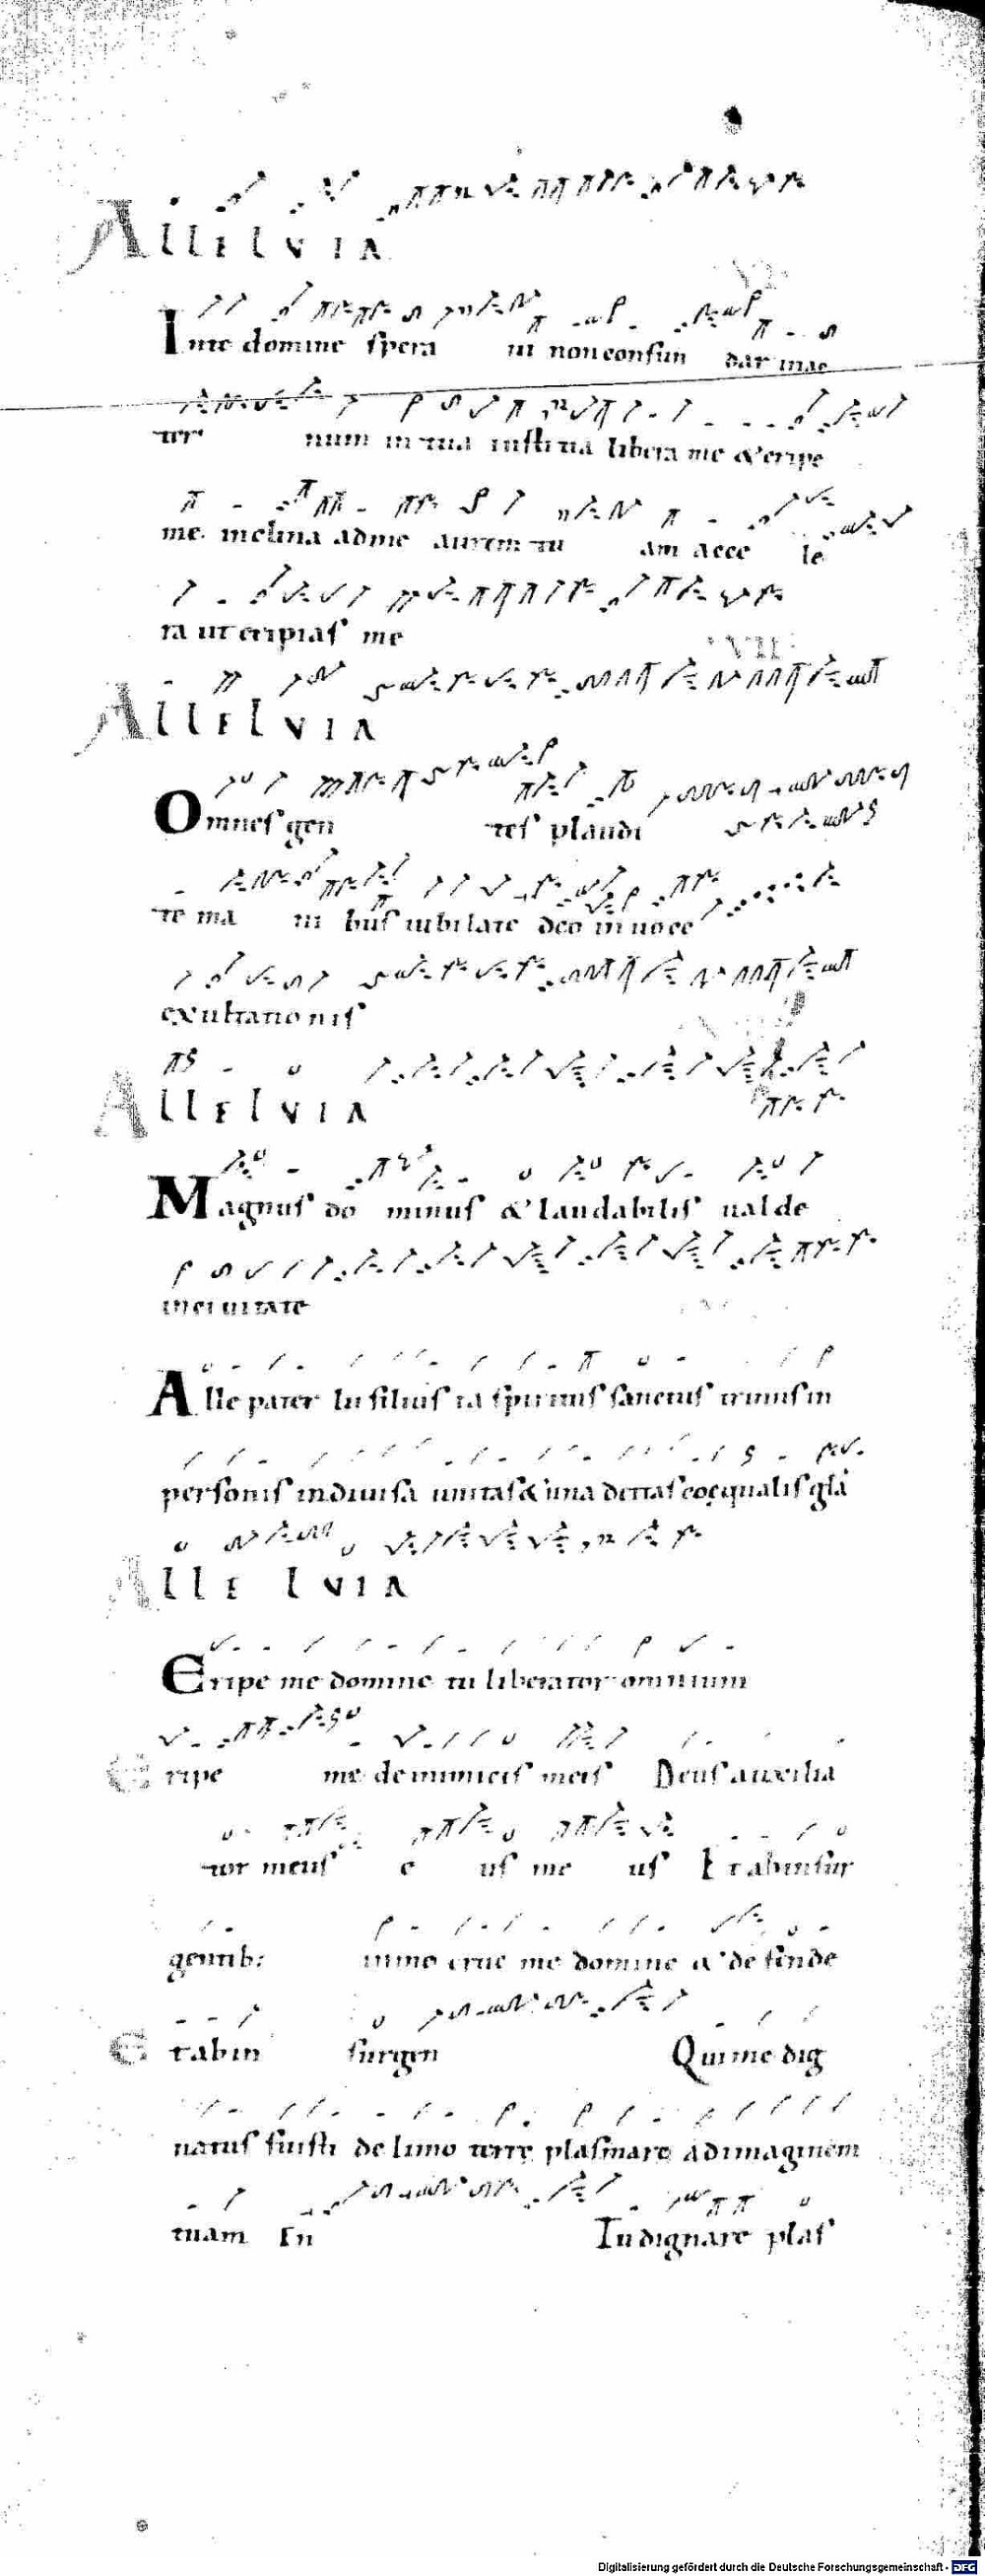 AllELVIA
In te domine spera ui non confun dar in ae
ter num in tua iustitia libera me & eripe
me. inclina ad me aurem tu am acce le
ra ut eripias me
VII
AllELVIA
Omnes gen tes plaudi
te ma ni bus iubilate deo in uoce
exultationis
AllELVIA
Magnus do minus & laudabilis ualde
in ciuitate
Alle pater lu filius ia spiritus sanctus trinus in
personis indiuisa unitas & una deitas coęqualis gła
AllE lVIA
Eripe me domine tu liberator omnium
Eripe me de inimicis meis Deus auxilia
tor meus e us me us Et ab insur
gentib: in me erue me domine & defende
Et ab in surgen Qui me dig
natus fuisti de limo terrę plasmare ad imaginem
tuam In In dignare plas
Digitalisierung gefördert durch die Deutsche Forschungsgemeinschaft - DFG